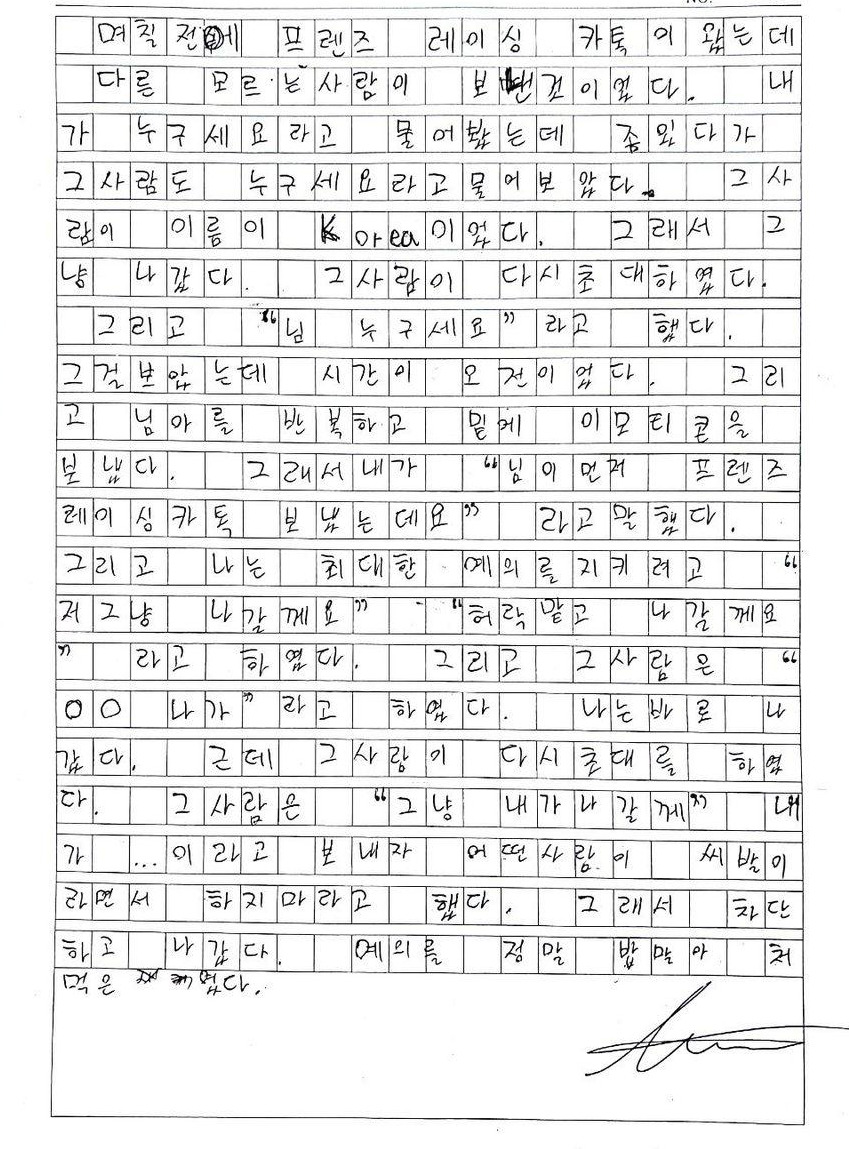 NO.
며칠 전에 프렌즈 레이싱 카톡이 왔는데
다른 모르는사람이 보낸것이었다. 내
가 누구세요라고 물어봤는데 좀있다가
그사람도 누구세요라고물어보았다. 그사
람이 이름이 Korea이었다. 그래서 그
냥 나갔다. 그사람이 다시초대하였다.
그리고 "님 누구세요" 라고 했다.
그걸보았는데 시간이 오전이었다. 그리
고 님아를 반복하고 밑에 이모티콘을
보냈다. 그래서내가 "님이먼저 프렌즈
레이싱카톡 보냈는데요" 라고말했다.
그리고 나는 최대한 예의를지키려고 "
저그냥 나갈께요" "허락맡고 나갈께요
" 라고 하였다. 그리고 그사람은 "
OO 나가" 라고 하였다. 나는바로 나
갔다. 근데 그사람이 다시초대를 하였
다. 그사람은 "그냥 내가나갈께" 내
가 ...이라고 보내자 어떤사람이 씨발이
라면서 하지마라고 했다. 그래서 차단
하고 나갔다. 예의를 정말 밥말아 처
먹은 였다.